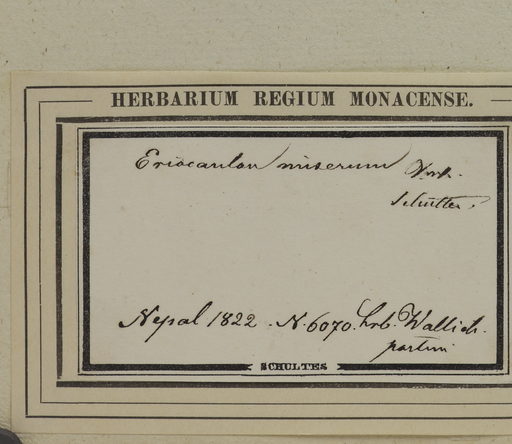 HERBARIUM REGIUM MONACENSE.
Eriocaulon miserum
Nepal 1822. N. 6070. hrb. Wallich.
partim
SCHULTES